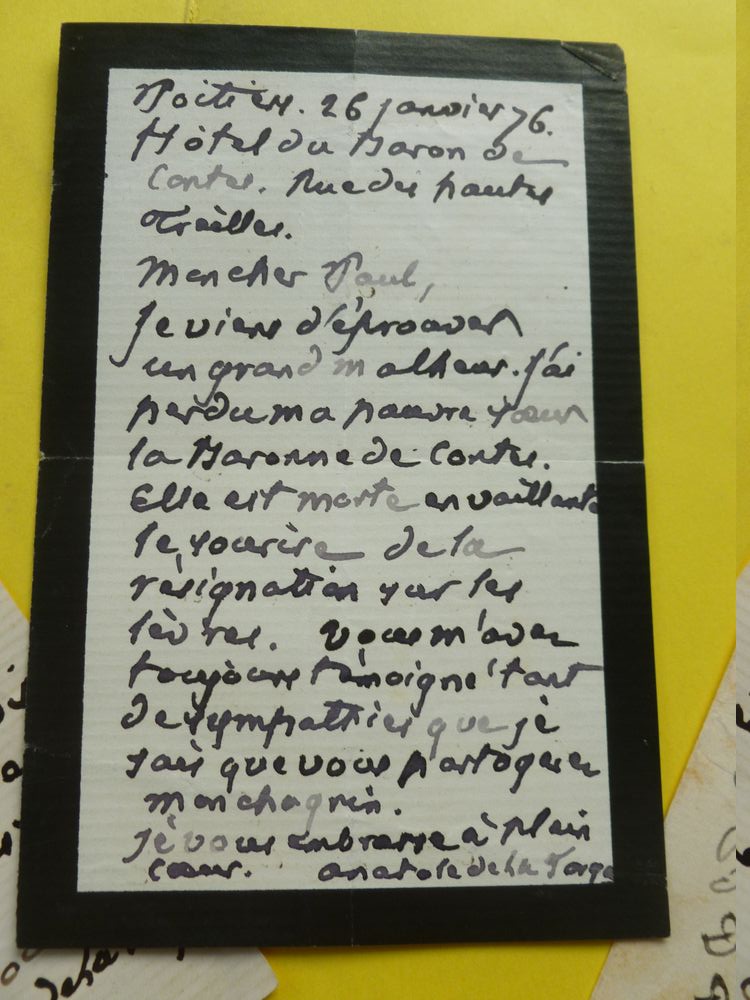 Poitiers. 26 janvier 76.
Hôtel du Baron de
Contes. Rue des hautes
Treilles.
Mon cher Paul,
je viens d'éprouver
un grand malheur. j'ai
perdu ma pauvre sœur
la Baronne de Contes.
Elle est morte en vaillante
le sourire de la
résignation sur les
lèvres. Vous m'avez
toujours témoigné tant
de sympathies que je
sais que vous partagerez
mon chagrin.
je vous embrasse à plein
cœur. anatole de la Forge